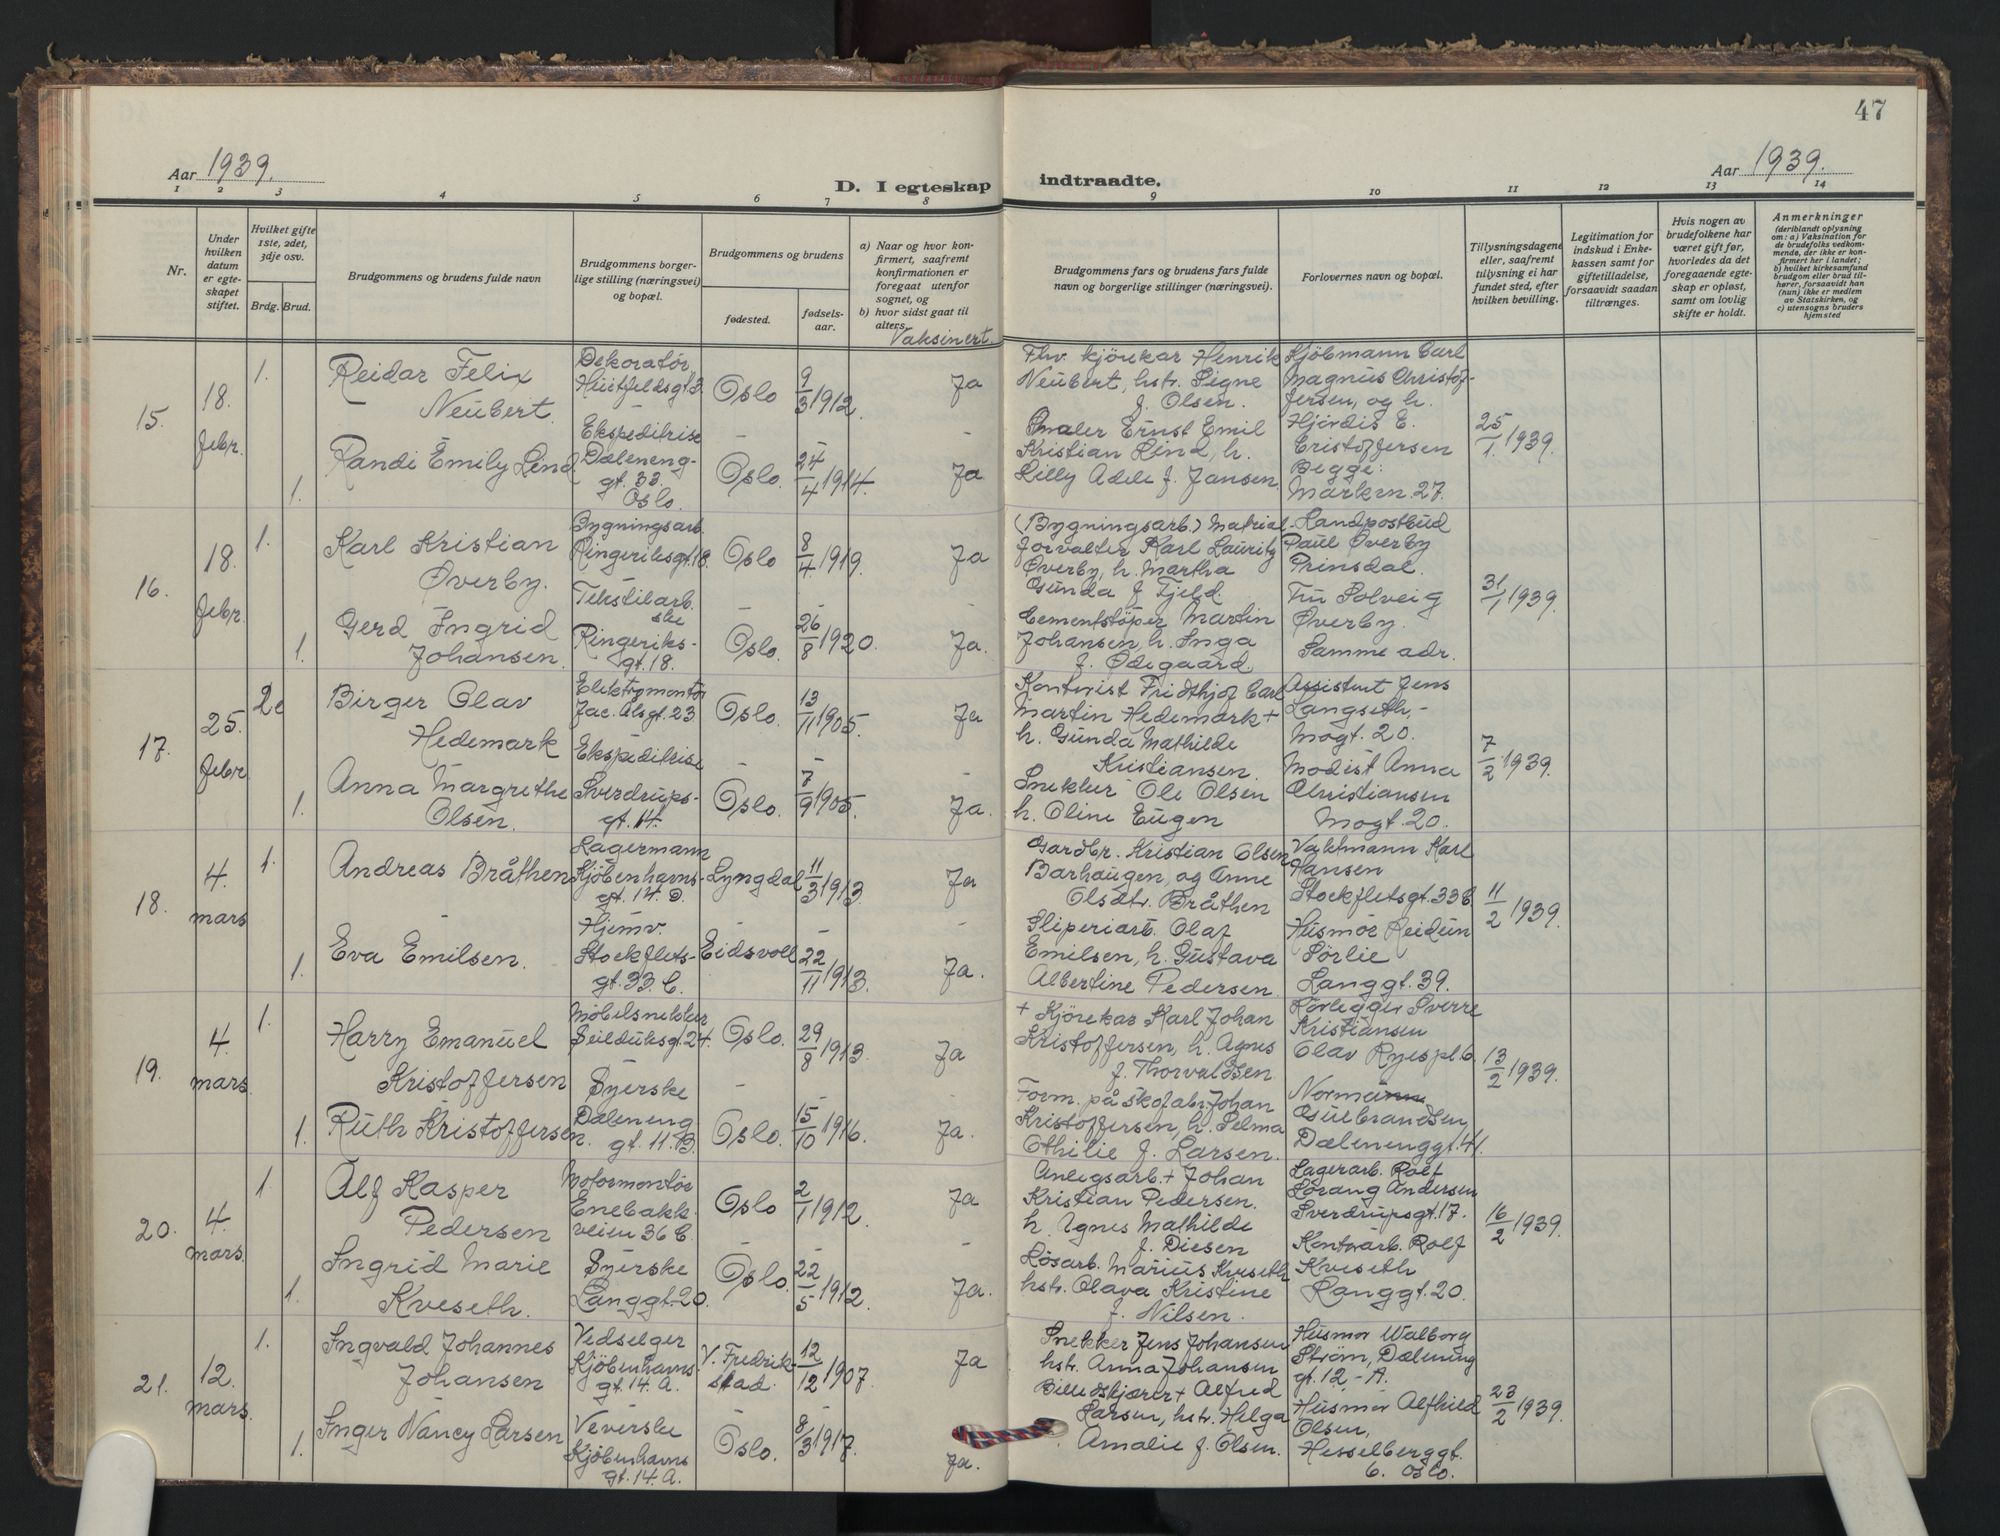 47
Aar 1939.
D. I egteskap indtraadte.
Aar 1939.
1 2 3 4 5 6 7 8 9 10 11 12 13 14
Nr.
Under hvilken datum er egteskapet stiftet.
Hvilket gifte 1ste, 2det, 3dje osv.
Brdg. Brud.
Brudgommens og brudens fulde navn
Brudgommens borgerlige stilling (næringsvei) og bopæl.
Brudgommens og brudens
fødested.
fødselsaar.
a) Naar og hvor konfirmert, saafremt konfirmationen er foregaat utenfor sognet, og
b) hvor sidst gaat til alters.
Vaksinert.
Brudgommens fars og brudens fars fulde navn og borgerlige stillinger (næringsvei).
Forlovernes navn og bopæl.
Tillysningsdagene eller, saafremt tillysning ei har fundet sted, efter hvilken bevilling.
Legitimation for indskud i Enkekassen samt for giftetilladelse, forsaavidt saadan tiltrænges.
Hvis nogen av brudefolkene har været gift før, hvorledes da det foregaaende egteskap er opløst, samt om lovlig skifte er holdt.
Anmerkninger
(deriblandt oplysning om: a) Vaksination for de brudefolks vedkommende, der ikke er konfirmert her i landet; b) hvilket kirkesamfund brudgom eller brud tilhører, forsaavidt han (hun) ikke er medlem av Statskirken, og c) utensogns bruders hjemsted
15. 18. febr.
1. Reidar Felix Neubert. Dekoratør Huitfeldsgt. 3 Oslo 9/3 1912. Ja
Fhv. kjörekar Henrik Neubert, hstr. Signe f. Olsen.
Kjöbmann Carl Magnus Christoffersen, og h. Hjördis E. Cristoffersen Begge: Markvn. 27.
1. Randi Emily Lind Ekspeditrise Dælenenggt. 33. Oslo. Oslo. 24/4 1914. Ja
Maler Ernst Emil Kristian Lind, h. Lilly Adele f. Jansen.
25/1 1939.
16. 18. febr.
1. Karl Kristian Øverby. Bygningsarb. Ringeriksgt. 18. Oslo 8/4 1919. Ja
(Bygningsarb.) Matrialforvalter Karl Lauritz Øverby, h. Martha Gunda f Fjeld.
Landpostbud Paul Øverby Prinsdal.
Fru Solveig Øverby. Samme adr.
1. Gerd Ingrid Johansen. Tekstilarb.ske Ringeriksgt. 18. Oslo. 26/8 1920. Ja.
Cementstöper Martin Johansen, h. Inga f. Ødegaard.
31/1 1939.
17. 25. febr.
2e Birger Olav Hedemark Elektromontör Jac. Alsgt. 23 Oslo. 13/11 1905. Ja
Kontorist Fridthjof Carl Martin Hedemark + h. Gunda Mathilde Kristiansen.
Assistent Jens Langseth, - Mogt. 20.
1. Anna Margrethe Olsen. Ekspeditrise Sverdrupsgt. 14. Oslo. 7/9 1905. Ja.
Snekker Ole Olsen h. Oline Eugen
Modist Anna Christiansen Mogt. 20.
7/2 1939.
18. 4. mars
1. Andreas Bråthen Lagermann Kjöbenhavnsgt. 14. D. Lyngdal 11/3 1913 Ja
Gardbr. Kristian Olsen Barhaugen, og Anne Olsdtr. Bråthen
Vaktmann Karl Hansen Stockfletsgt. 33 C
1. Eva Emilsen. Hjemv. Stockfletsgt. 33. C. Eidsvoll 22/11 1913. Ja.
Sliperiarb. Olaf Emilsen, h. Gustava Albertine Pedersen.
Husmor Reidun Sörlie Langgt. 39.
11/2 1939.
19. 4. mars
1. Harry Emanuel Kristoffersen Möbelsnekker Seilduksgt. 24. Oslo. 29/8 1913. Ja
+ Kjörekar Karl Johan Kristoffersen, h. Agnes f. Thorvaldsen
Rörlegger Sverre Kristiansen Olav Ryespl. 6.
1. Ruth Kristoffersen. Syerske Dælenenggt. 11. B. Oslo. 15/10 1916. Ja.
Form. på skofabr. Johan Kristoffersen, h. Selma Othilie f. Larsen.
Normann Gulbrandsen, Dælenenggt. 41.
13/2 1939.
20. 4. mars.
1. Alf Kasper Pedersen Motormontör Enebakkveien 36 C. Oslo 2/1 1912. Ja
Anlegsarb. + Johan Kristian Pedersen. h. Agnes Mathilde f. Diesen
Lagerarb. Rolf Sörang Andersen Sverdrupsgt. 17.
1. Ingrid Marie Kveseth. Syerske Langgt. 20. Oslo. 22/5 1912. Ja.
Løsarb. Marius Kveseth hstr. Olava Kristine f. Nilsen.
Kontorarb. Rolf Kveseth Langgt. 20.
16/2 1939.
21. 12. mars.
1. Ingvald Johannes Johansen Vedselger Kjöbenhavnsgt. 14. A. V. Fredrikstad. 12/12 1907. Ja
Snekker Jens Johansen hstr. Anna Johansen
Husmor Walborg Ström, Dælenenggt. 12 - A.
1. Inger Nancy Larsen Veverske Kjöbenhavnsgt. 14. A. Oslo. 8/3 1917. Ja.
Billedskjærer + Alfred Larsen, hstr. Helga Amalie f. Olsen.
Husmor Alfhild Olsen, Hesselberggt. 6. Oslo.
23/2 1939.